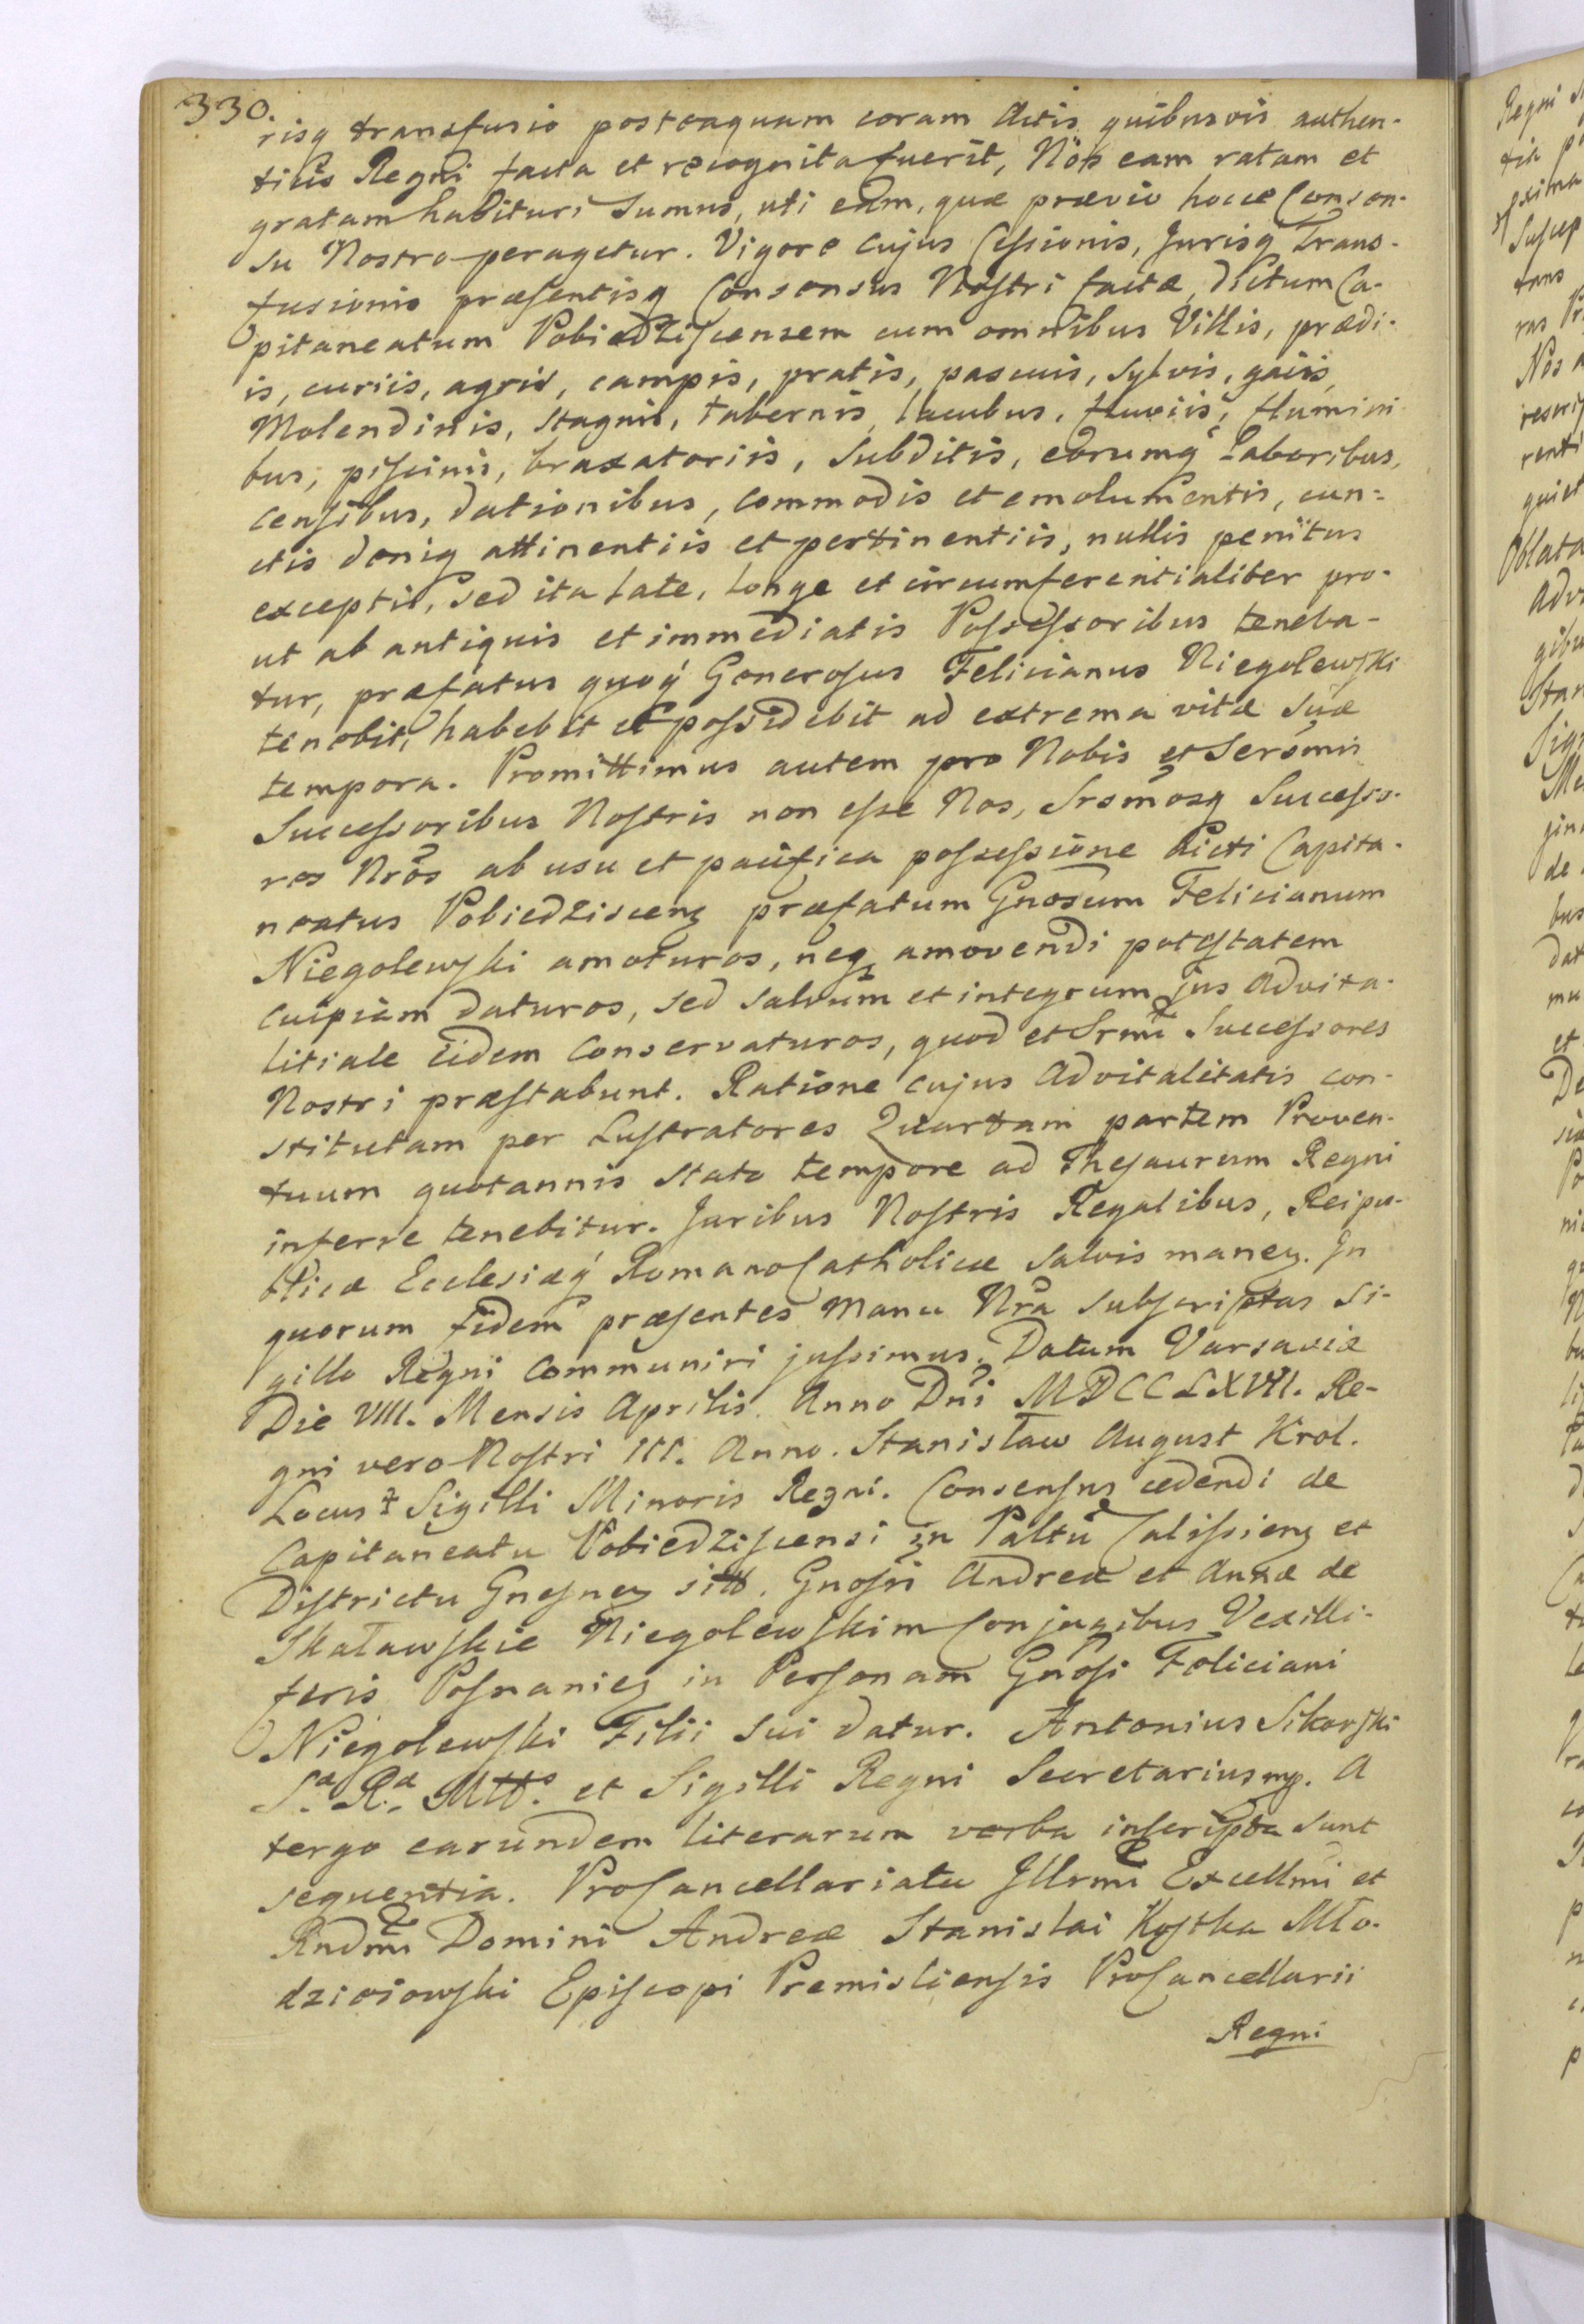 330.
risq transfusio posteaquam coram Actis quibusvis authen-
ticis Regni facta et recognita fuerit, Nos eam ratam et
gratam habituri Sumus, uti eam, quæ prævio hocce Consen-
su Nostro peragetur. Vigore cujus Cessionis, Jurisq Trans-
fusionis præsentisq Consensus Nostri factæ, dictum Ca-
pitaneatum Pobiedziscensem cum omnibus Villis, prædi-
is, curiis, agris, campis, pratis, pascuis, sylvis, gaiis,
Molendinis, stagnis, tabernis, lacubus, fluviis, flumini-
bus, piscinis, braxatoriis, Subditis, eorumq Laboribus,
censibus, dationibus, commodis et emolumentis, cun-
ctis deniq attinentiis et pertinentiis, nullis penitus
exceptis, sed ita late, longe et circumferentialiter pro-
ut ab antiquis et immediatis Possessoribus teneba-
tur, præfatus quoq Generosus Felicianus Niegolewski
tenebit, habebit et possidebit ad extrema vitæ suæ
tempora. Promittimus autem pro Nobis et Sersmis
Successoribus Nostris non esse Nos, Srsmosq Successo-
res Nros ab usu et pacifica possessione dicti Capita-
neatus Pobiedziscens præfatum Gnosum Felicianum
Niegolewski amoturos, neq amovendi potestatem
cuipiam daturos, sed salvum et integrum jus advita-
litiale eidem Conservaturos, quod et Srmi Successores
Nostri præstabunt. Ratione cujus advitalitatis con-
stitutam per Lustratores Quartam partem Proven-
tuum quotannis stato tempore ad Thesaurum Regni
inferre tenebitur. Juribus Nostris Regalibus, Reipu-
blicæ Ecclesiæq Romano Catholicæ salvis manen. In
quorum fidem præsentes Manu Nra subscriptas Si-
gillo Regni Communiri jussimus. Datum Varsaviæ
Die VIII. Mensis Aprilis. Anno Dni MDCCLXVII. Re-
gni vero Nostri III. Anno. Stanisław August Krol.
Locus Sigilli Minoris Regni. Consensus cedendi de
Capitaneatu Pobiedziscensi in Paltu Calissien et
Districtu Gnesnen sitt. Gnosi Andreæ et Annæ de
Skaławskie Niegolewskim Conjugibus Vexilli-
feris Posnanien in Personam Gnosi Feliciani
Niegolewski Filii sui datur. Antonius Sikorski
S. R. Mtts. et Sigilli Regni Secretarius mp. A
tergo earundem literarum verba inscripta sunt
sequentia. ProCancellariatu Illrmi Excellmi et
Rndmi Domini Andreæ Stanislai Kostka Mło-
dzieiowski Episcopi Premisliensis ProCancellarii
Regni